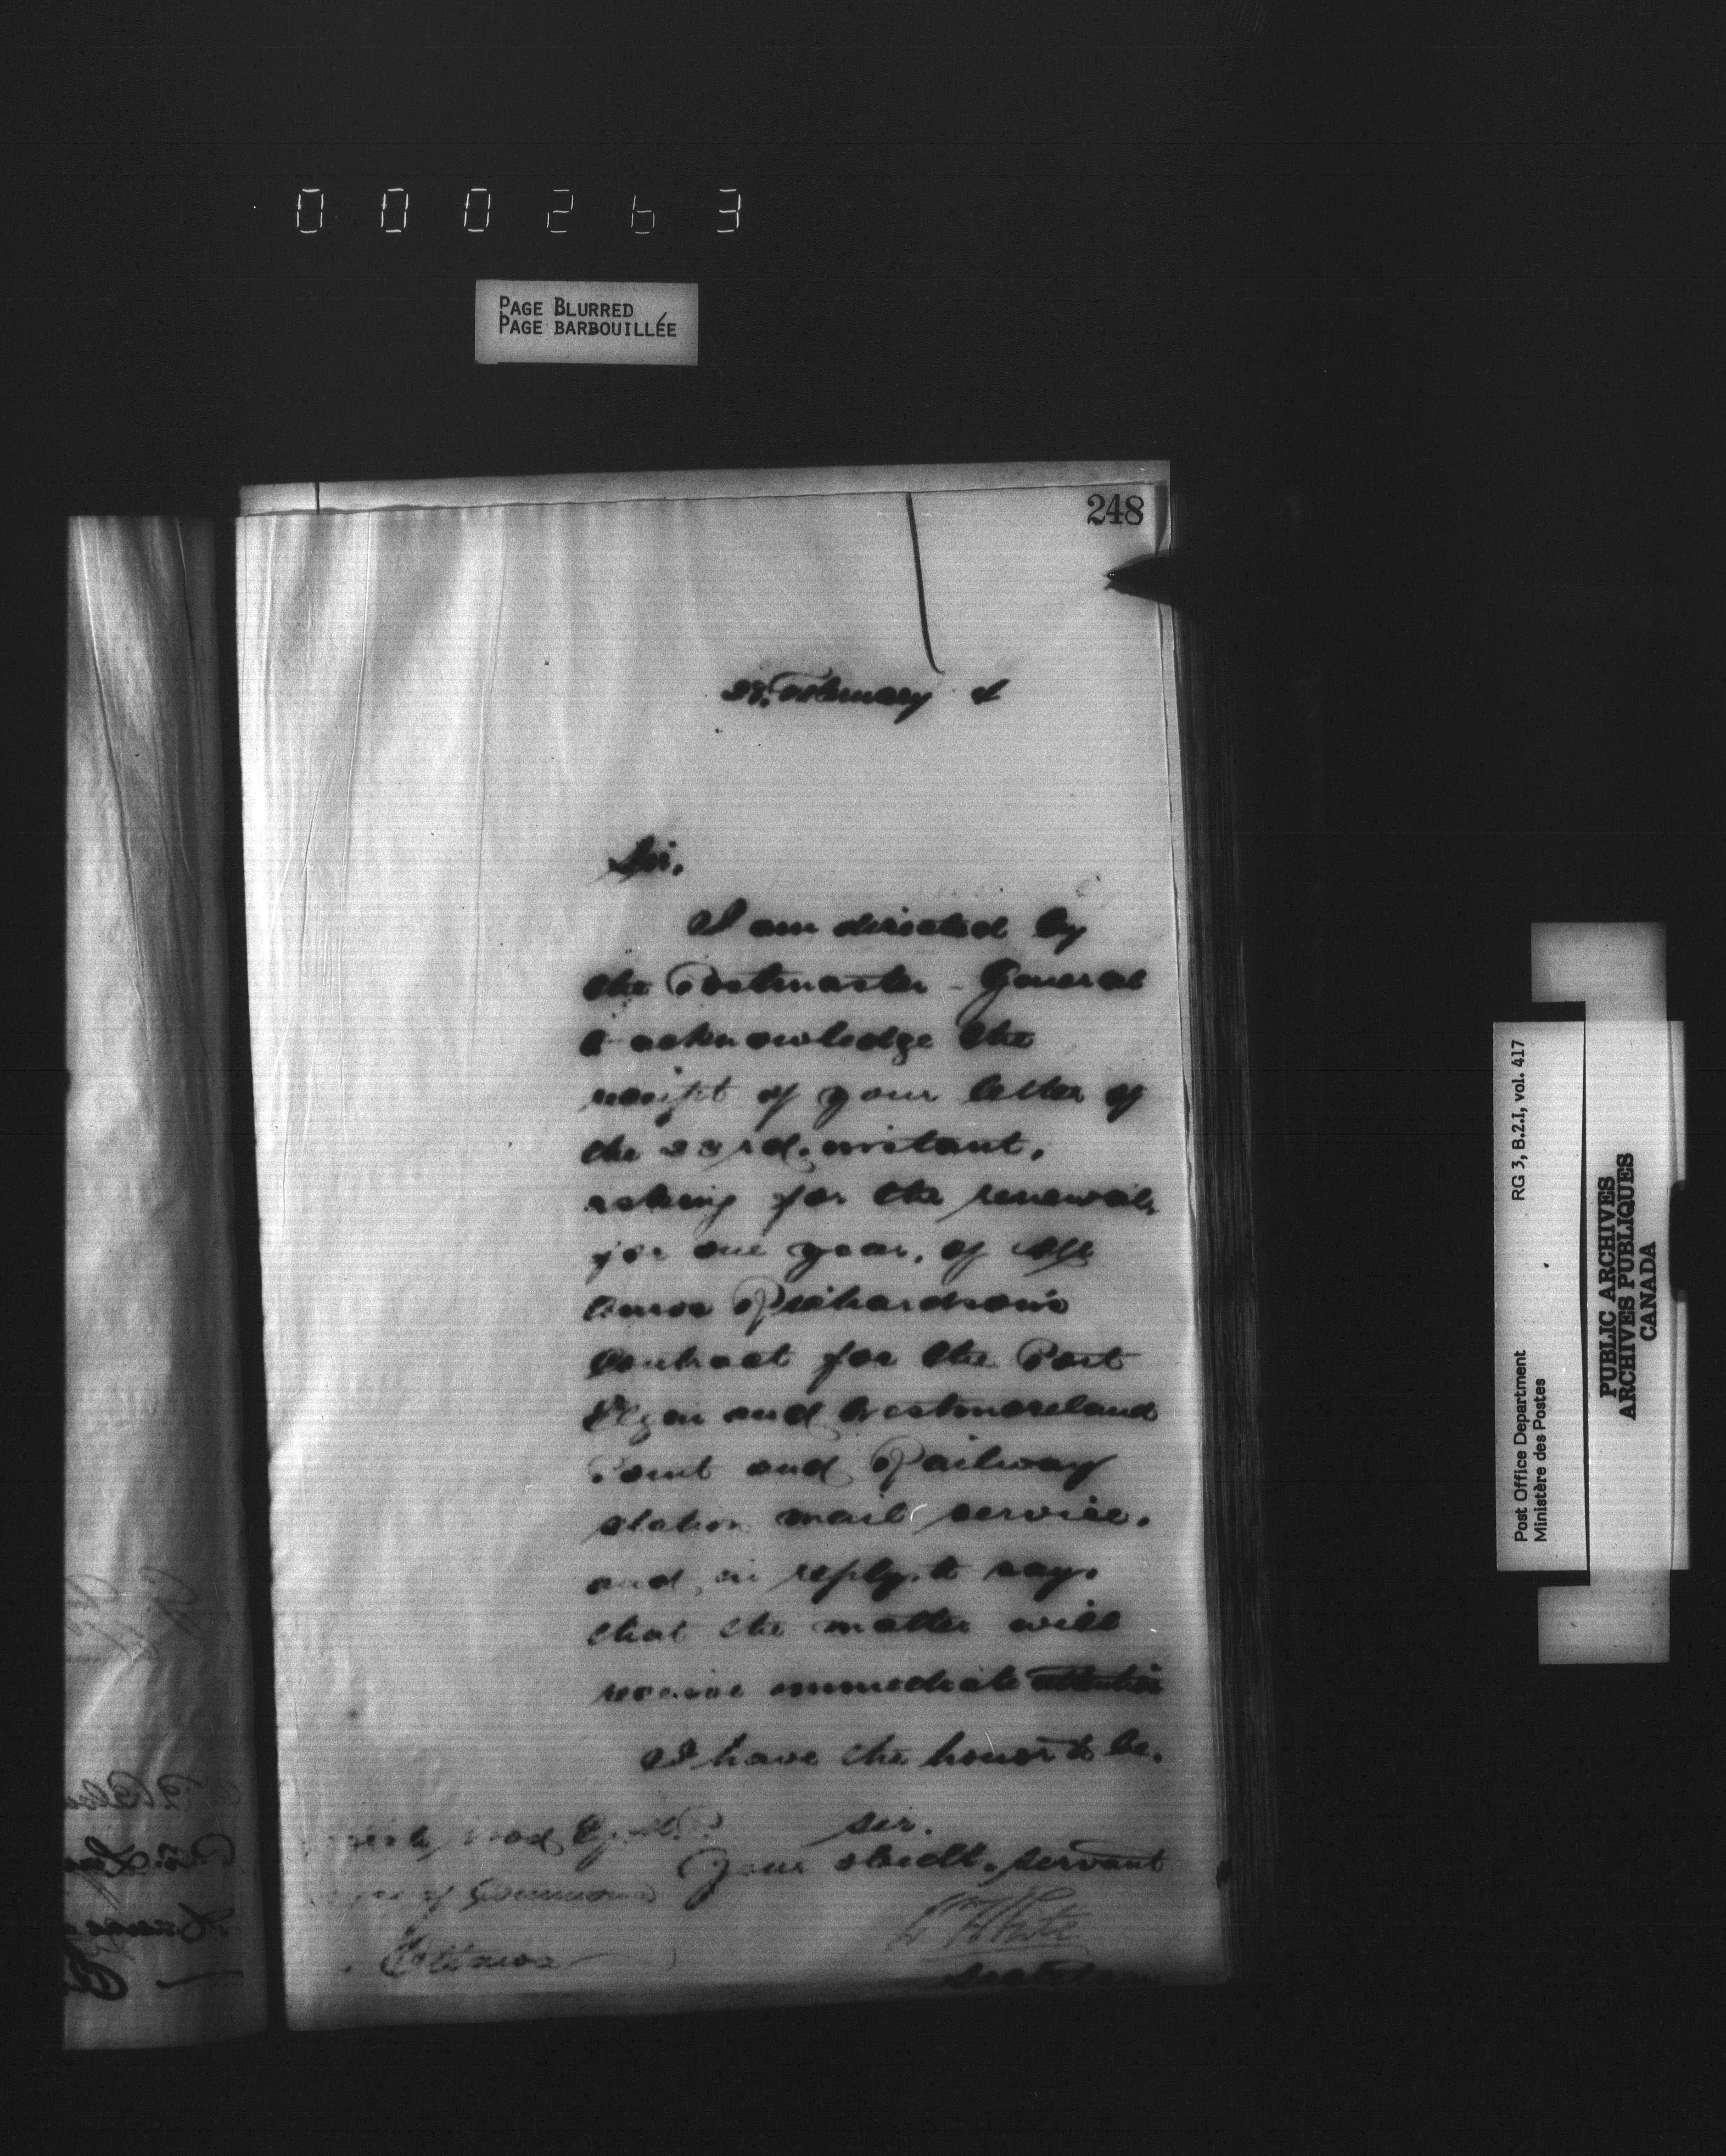 000263
PAGE BLURRED
PAGE BARBOUILLÉE
248
February
Sir.
I am directed by
the Postmaster - General
to acknowledge the
receipt of your letter of
the 23rd. instant,
asking for the renewal,
for one year, of
Richardson's
Contract for the Port
Elgin and Westmoreland
Point and Railway
station mail service,
and, in reply, to say,
that the matter will
receive immediate attention
I have the honor to be.
Sir.
Your obedt. servant
of Commons
Ottawa
W White
Secretary
Post Office Department
Ministère des Postes
RG 3, B.2.I, vol. 417
PUBLIC ARCHIVES
ARCHIVES PUBLIQUES
CANADA